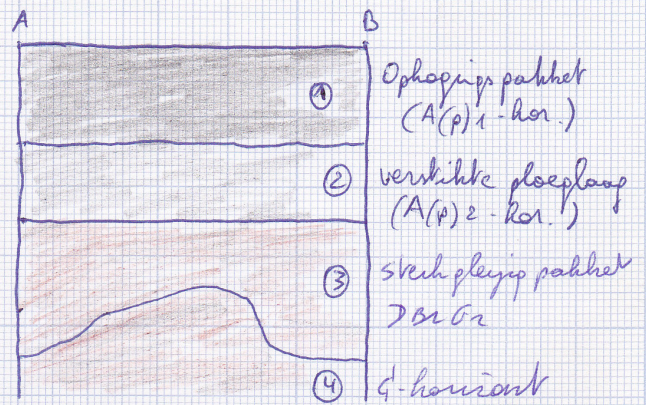 A B
1 Ophogingspakket
(A(p)1-hor.)
2 verstikte ploeglaag
(A(p)2-hor.)
3 sterk gleyig pakket
4 C-horizont